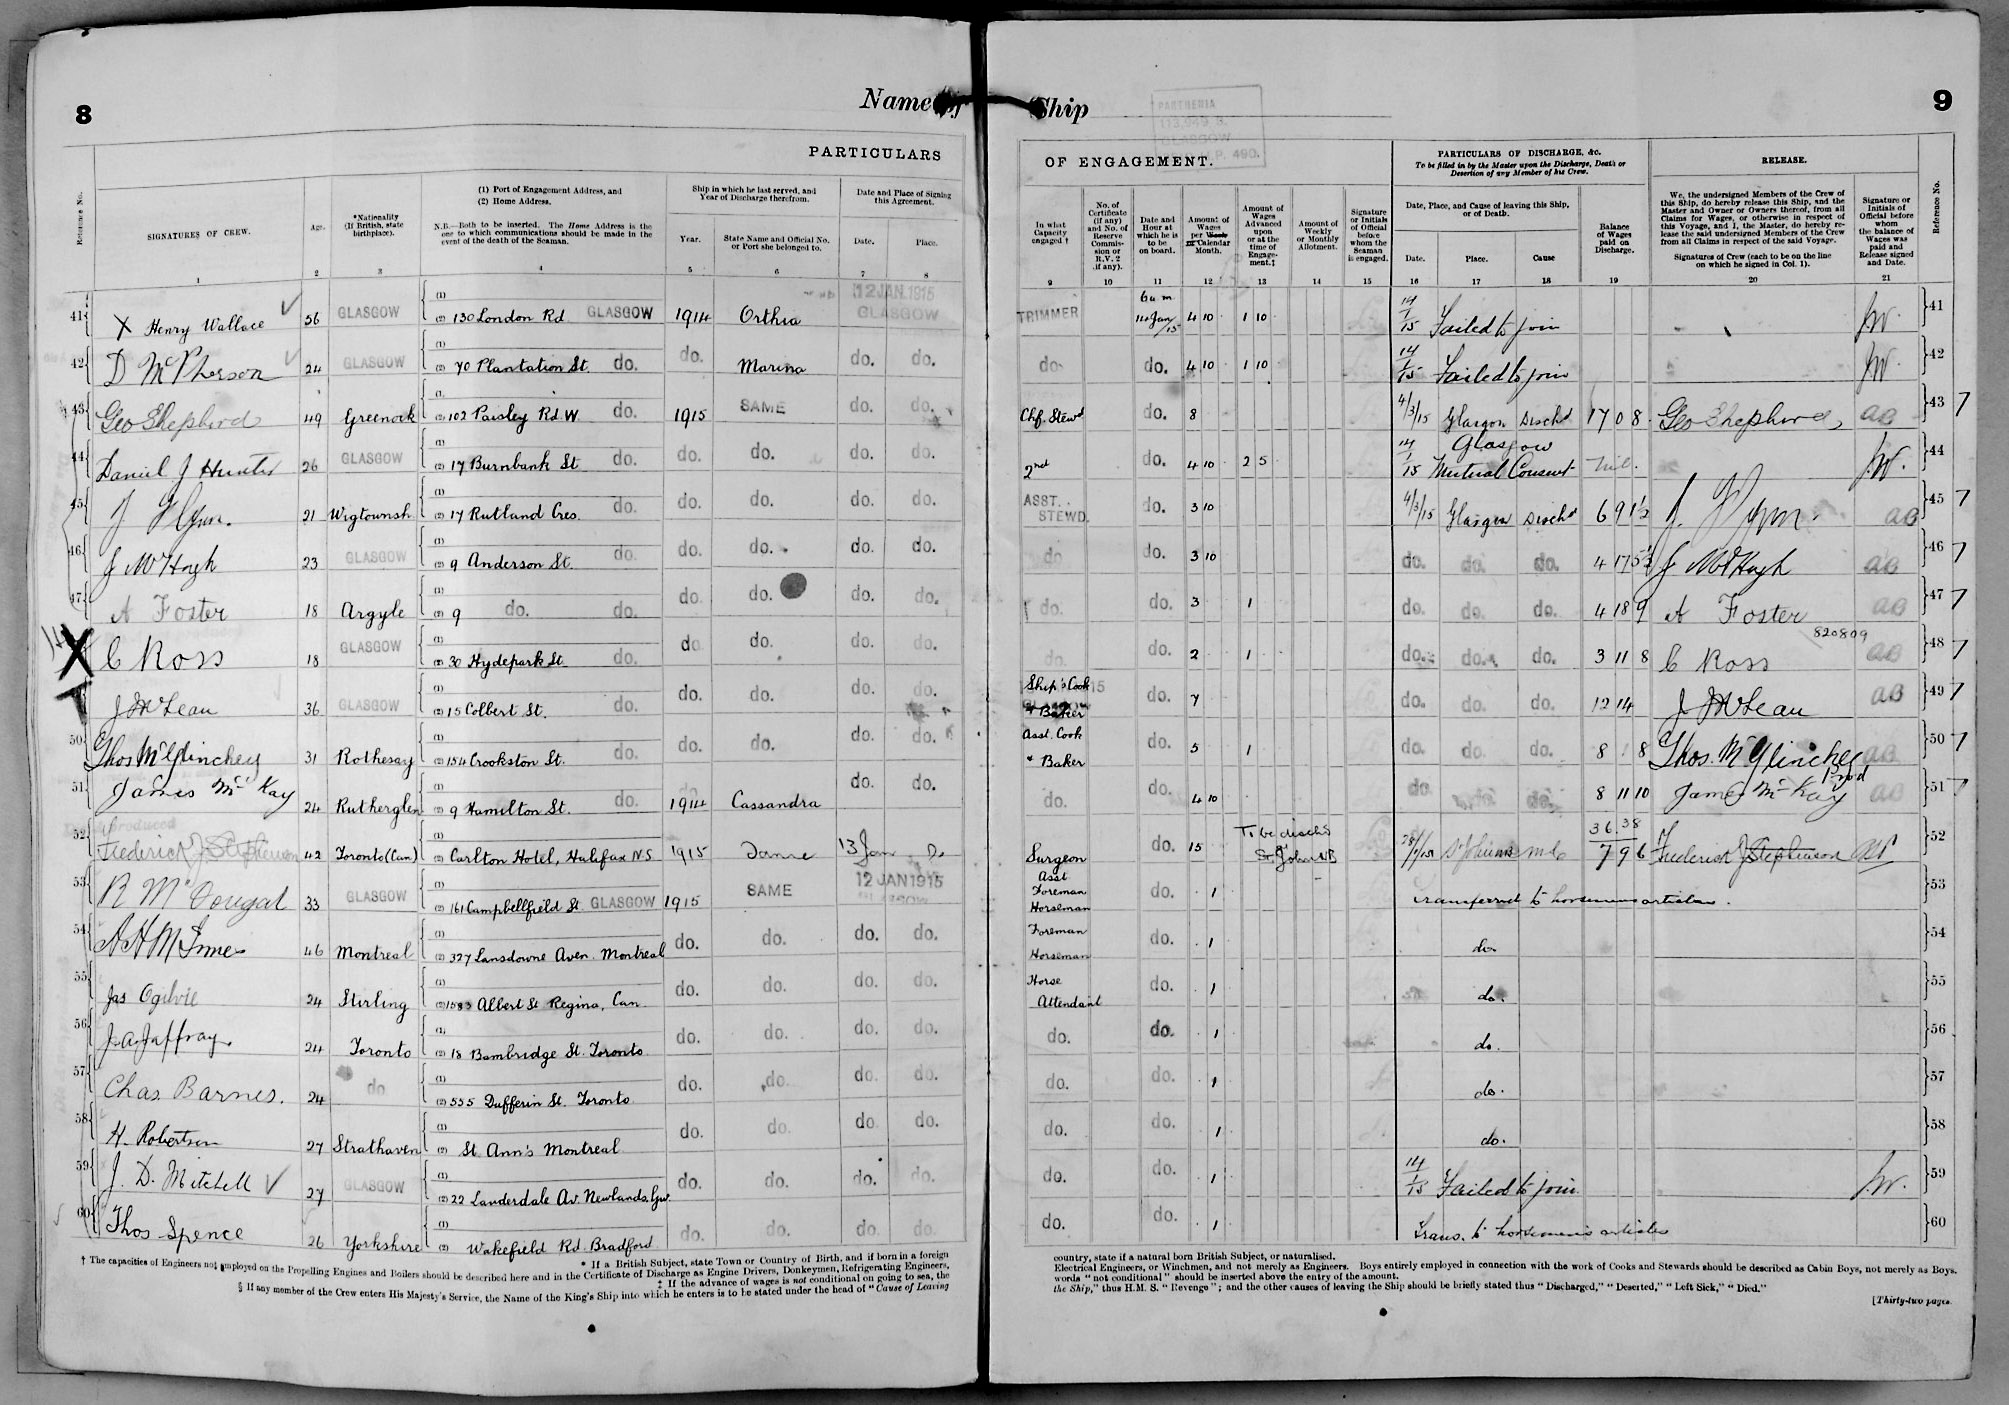 8
Name of Ship
9
PARTHENIA
GLASGOW
PARTICULARS OF ENGAGEMENT.
PARTICULARS OF DISCHARGE, &c.
To be filled in by the Master upon the Discharge, Death or Desertion of any Member of his Crew.
RELEASE.
Reference No.
SIGNATURES OF CREW.
Age.
*Nationality (If British, state birthplace).
(1) Port of Engagement Address, and
(2) Home Address.
N.B.—Both to be inserted. The Home Address is the one to which communications should be made in the event of the death of the Seaman.
Ship in which he last served, and Year of Discharge therefrom.
Year.
State Name and Official No. or Port she belonged to.
Date and Place of Signing this Agreement.
Date.
Place.
In what Capacity engaged †
No. of Certificate (if any) and No. of Reserve Commission or R.V. 2 (if any).
Date and Hour at which he is to be on board.
Amount of Wages per Week or Calendar Month.
Amount of Wages Advanced upon or at the time of Engagement.‡
Amount of Weekly or Monthly Allotment.
Signature or Initials of Official before whom the Seaman is engaged.
Date, Place, and Cause of leaving this Ship, or of Death.
Date.
Place.
Cause
Balance of Wages paid on Discharge.
We, the undersigned Members of the Crew of this Ship, do hereby release this Ship, and the Master and Owner or Owners thereof, from all Claims for Wages, or otherwise in respect of this Voyage, and I, the Master, do hereby release the said undersigned Members of the Crew from all Claims in respect of the said Voyage.
Signatures of Crew (each to be on the line on which he signed in Col. 1).
Signature or Initials of Official before whom the balance of Wages was paid and Release signed and Date.
Reference No.
1 2 3 4 5 6 7 8 9 10 11 12 13 14 15 16 17 18 19 20 21
41 X Henry Wallace 56 GLASGOW (1) (2) 130 London Rd GLASGOW 1914 Orthia 12 JAN 1915 GLASGOW TRIMMER 6 a m 14 Jan/15 4 10 1 10 14/1/15 Failed to join 41
42 D McPherson 24 GLASGOW (1) (2) 70 Plantation St. do. do. Marina do. do. do. do. 4 10 1 10 14/1/15 Failed to join 42
43 Geo Shepherd 49 Greenock (1) (2) 102 Paisley Rd W do. 1915 SAME do. do. Chf. Stewd do. 8 4/3/15 Glasgow Dischd 17 0 8 Geo Shepherd 43 7
44 Daniel J Hunter 26 GLASGOW (1) (2) 17 Burnbank St do. do. do. do. do. 2nd do. 4 10 2 5 14/1/15 Glasgow Mutual Consent Nil. 44
45 J Flynn. 21 Wigtownsh (1) (2) 17 Rutland Cres. do. do. do. do. do. ASST. STEWD. do. 3 10 4/3/15 Glasgow Dischd 6 9 1½ J. Flynn. 45 7
46 J McHugh 23 GLASGOW (1) (2) 9 Anderson St. do. do. do. do. do. do. do. 3 10 do. do. do. 4 17 5½ J McHugh 46 7
47 A Foster 18 Argyle (1) (2) 9 do. do. do. do. do. do. do. do. 3 1 do. do. do. 4 18 9 A Foster 47 7
48 C Ross 18 GLASGOW (1) (2) 30 Hydepark St. do. do do. do. do. do. do. 2 1 do. do. do. 3 11 8 C Ross 820809 48 7
49 J McLean 36 GLASGOW (1) (2) 15 Colbert St. do. do. do. do. do. Ship's Cook + Baker do. 7 do. do. do. 12 14 J McLean 49 7
50 Thos McGlinchey 31 Rothesay (1) (2) 154 Crookston St. do. do. do. do. do. Asst. Cook + Baker do. 5 1 do. do. do. 8 8 Thos. McGlinchey 50 7
51 James McKay 24 Rutherglen (1) (2) 9 Hamilton St. do. 1914 Cassandra do. do. do. do. 4 10 do. do. do. 8 11 10 James McKay 51 7
52 Frederick J Stephenson 42 Toronto (Can) (1) (2) Carlton Hotel, Halifax N.S 1915 Same 13 Jan Do Surgeon do. 15 To be dischd St John NB 36.38 7 9 6 Frederick J Stephenson 52
53 R McDougal 33 GLASGOW (1) (2) 161 Campbellfield St. GLASGOW 1915 SAME 12 JAN 1915 GLASGOW Asst Foreman Horseman do. 1 Transferred to horsemens articles. 53
54 A H McInnes 46 Montreal (1) (2) 327 Lansdowne Aven. Montreal do. do. do. do. Foreman Horseman do. 1 do. 54
55 Jas Ogilvie 24 Stirling (1) (2) 1583 Albert St Regina, Can. do. do. do. do. Horse Attendant do. 1 do. 55
56 J. A. Jaffray. 24 Toronto (1) (2) 18 Bambridge St. Toronto. do. do. do. do. do. do. 1 do. 56
57 Chas. Barnes. 24 do (1) (2) 555 Dufferin St. Toronto do. do. do. do. do. do. 1 do. 57
58 H. Robertson 27 Strathaven (1) (2) St. Ann's Montreal do. do. do. do. do. do. 1 do. 58
59 J. D. Mitchell 27 GLASGOW (1) (2) 22 Lauderdale Av. Newlands. Gw. do. do. do. do. do. do. 1 14/1/15 Failed to join. 59
60 Thos Spence 26 Yorkshire (1) (2) Wakefield Rd. Bradford do. do. do. do. do. do. 1 Trans. to horsemen's articles 60
* If a British Subject, state Town or Country of Birth, and if born in a foreign country, state if a natural born British Subject, or naturalised.
† The capacities of Engineers not employed on the Propelling Engines and Boilers should be described here and in the Certificate of Discharge as Engine Drivers, Donkeymen, Refrigerating Engineers, Electrical Engineers, or Winchmen, and not merely as Engineers. Boys entirely employed in connection with the work of Cooks and Stewards should be described as Cabin Boys, not merely as Boys.
‡ If the advance of wages is not conditional on going to sea, the words "not conditional" should be inserted above the entry of the amount.
§ If any member of the Crew enters His Majesty's Service, the Name of the King's Ship into which he enters is to be stated under the head of "Cause of Leaving the Ship," thus H.M. S. "Revenge"; and the other causes of leaving the Ship should be briefly stated thus "Discharged," "Deserted," "Left Sick," "Died."
[Thirty-two pages.